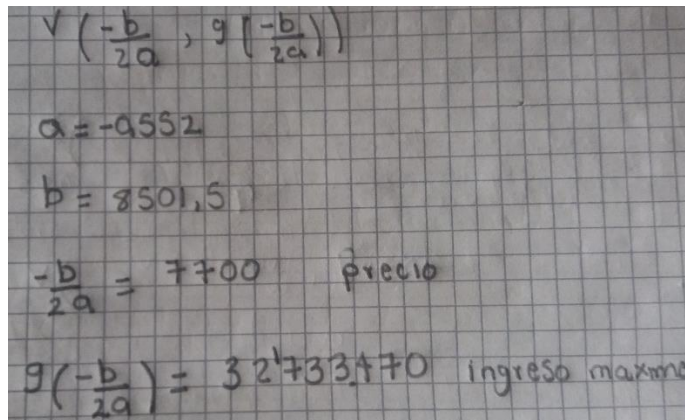 V (-b/2a , g(-b/2a))
a = -0,552
b = 8501,5
-b/2a = 7700 precio
g(-b/2a) = 32'733.170 ingreso maxmo